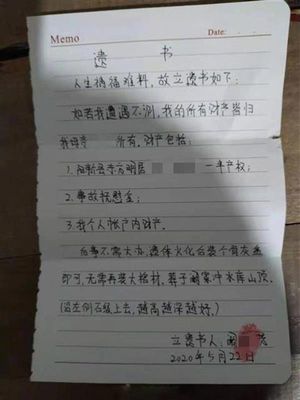 Memo Date:
遗 书
人生祸福难料,故立遗书如下:
如若我遭遇不测,我的所有财产皆归
我母亲 所有,财产包括:
1.阳新县东方明居 一半产权;
2.事故抚慰金;
3.我个人帐户内财产。
后事不需大办,遗体火化后装个骨灰盒
即可,无需再装大棺材,葬于 家冲水库山顶,
(沿左侧石级上去,越高越深越好。)
立遗书人:
2020年5月22日